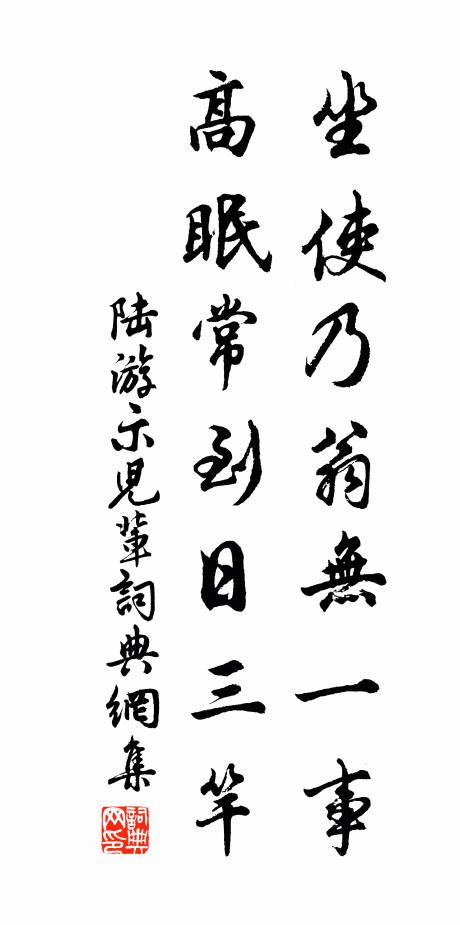 坐使乃翁無一事
高眠常到日三竿
陆游示児輩詞典網集
詞典网印